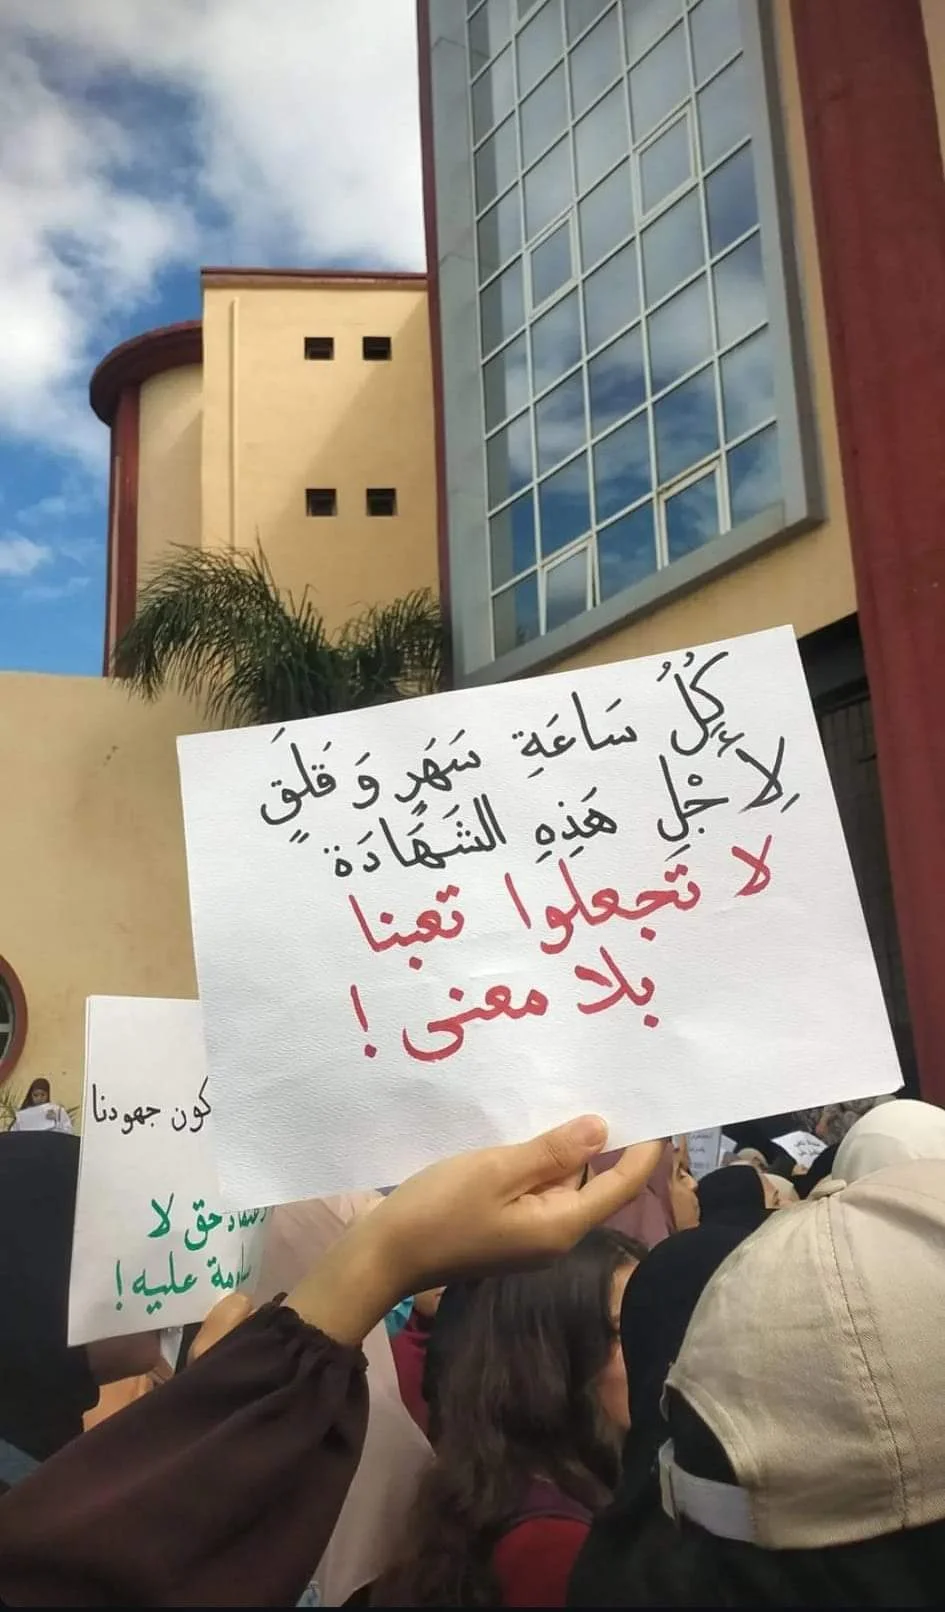 كُلُ سَاعَةِ سَهَرٍ وَ قَلَقٍ
لِأَجْلِ هَذِهِ الشَهَادَة
لا تجعلوا تعبنا
بلا معنى !
كون جهودنا
حق لا
عليه !